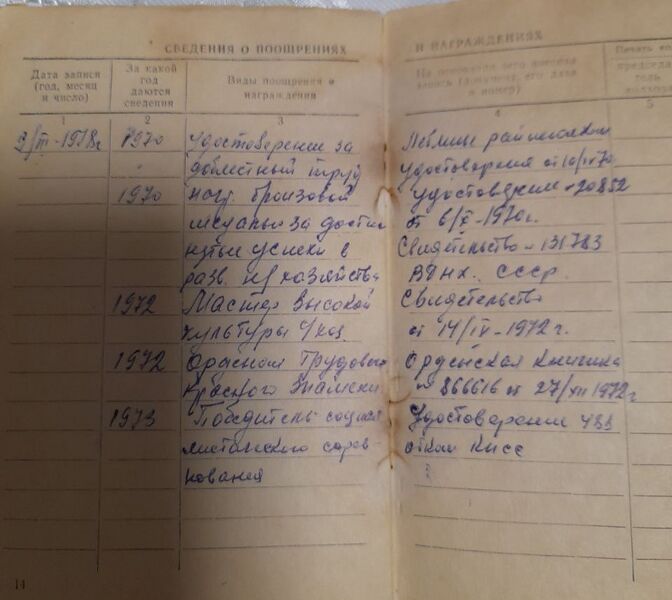 СВЕДЕНИЯ О ПООЩРЕНИЯХ
И НАГРАЖДЕНИЯХ
Дата записи (год, месяц и число)
За какой год даются сведения
Виды поощрения и награждения
На основании чего внесена запись (документ, его дата и номер)
Печать
председа-
тель
1 2 3 4 5
9/III-1978г 1970 Удостоверение за
доблестный труд
удостоверения от 10/IV 70,
1970 нагр. бронзовой удостоверение 20852
медалью за достиг от 6/X-1970г.
нутые успехи в Свидетельство 131783
разв. н/хозяйства ВДНХ. СССР.
1972 Мастер Высокой Свидетельство
культуры от 14/IV-1972г.
1972 Орденом Трудового Орденская книжка
Красного Знамени 866616 от 27/XII 1972г
1973 Победитель социа Удостоверение
листического сорев-
нования
14